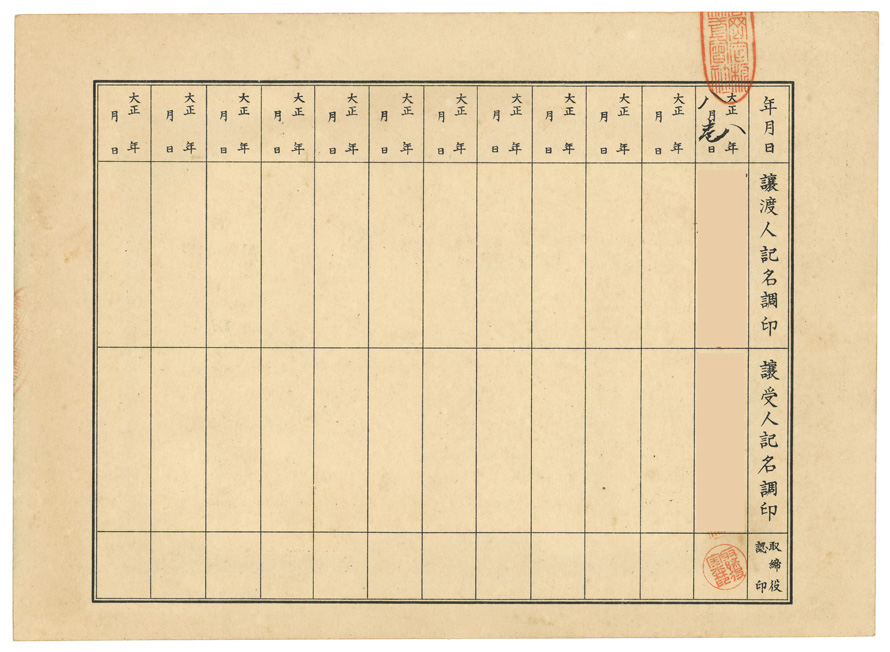 年月日
讓渡人記名調印
讓受人記名調印
取締役
認印
大正八年
八月日
大正 年
月 日
大正 年
月 日
大正 年
月 日
大正 年
月 日
大正 年
月 日
大正 年
月 日
大正 年
月 日
大正 年
月 日
大正 年
月 日
大正 年
月 日
大正 年
月 日